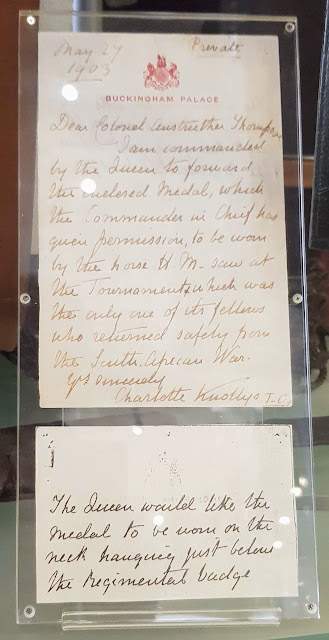 May 27
1903
Private
BUCKINGHAM PALACE
Dear Colonel Anstruther Thomson
I am commanded
by the Queen to forward
the enclosed Medal, which
the Commander in Chief has
given permission, to be worn
by the horse H.M. saw at
the Tournament, which was
the only one of its fellows
who returned safely from
the South African War.
Yrs sincerely
Charlotte Knollys
The Queen would like the
medal to be worn on the
neck hanging just below
the Regimental badge